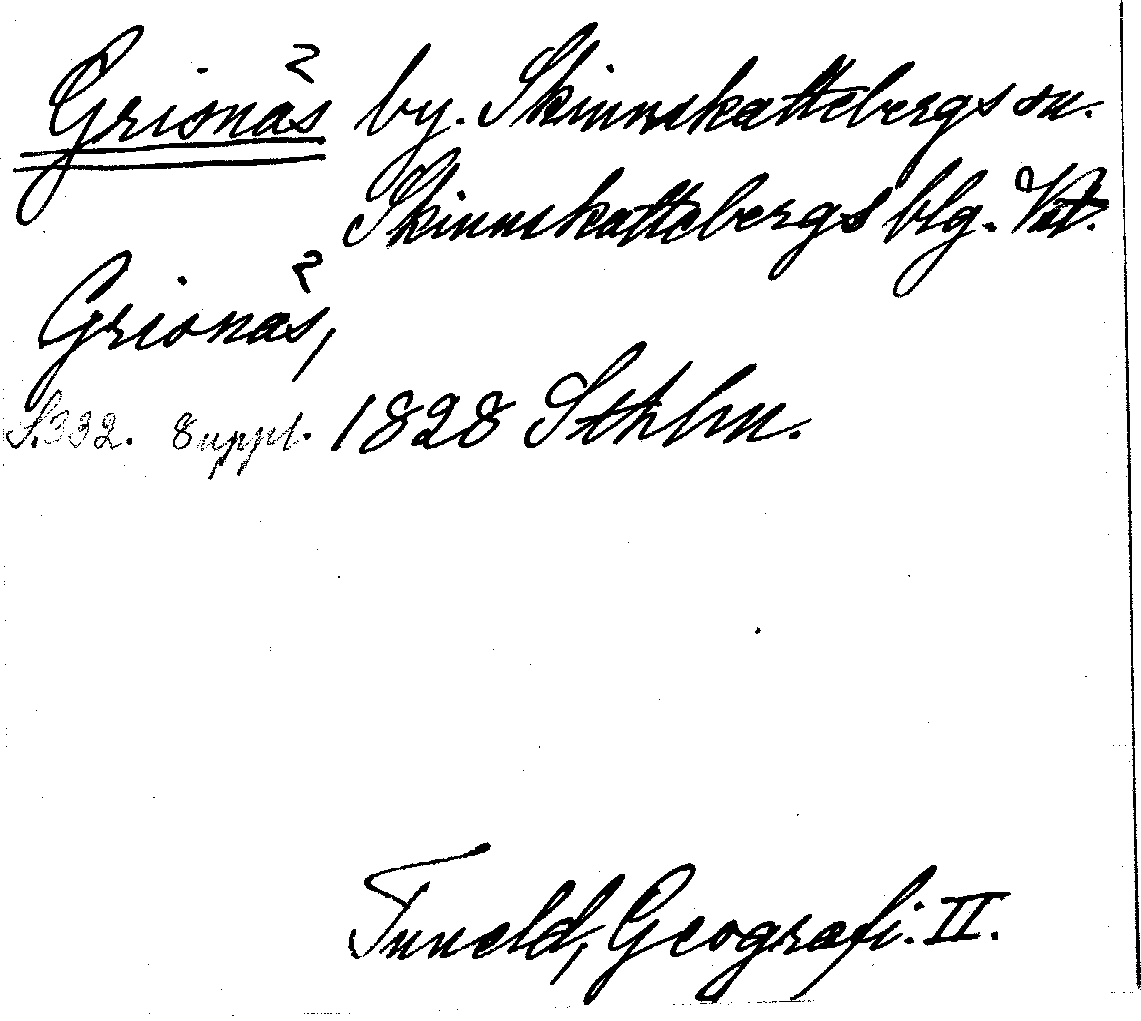 Grionäs by. Skinnskattebergs sn.
Skinnskattebergs blg. Vst.
Grionäs,
S. 332. 8 uppl. 1828 Sthlm.
Tuneld, Geografi. II.